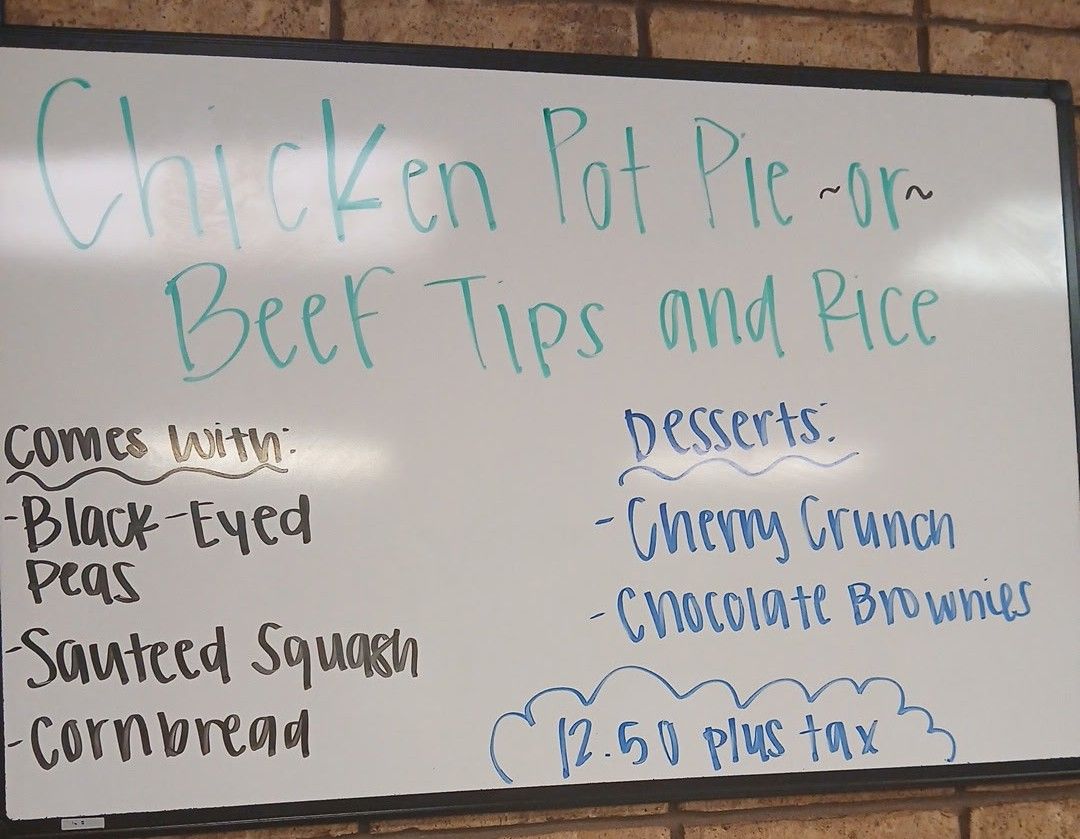 Chicken Pot Pie ~or~
Beef Tips and Rice
Comes With:
-Black-Eyed
Peas
-Sauteed Squash
-Cornbread
Desserts:
-Cherry Crunch
-Chocolate Brownies
12.50 plus tax